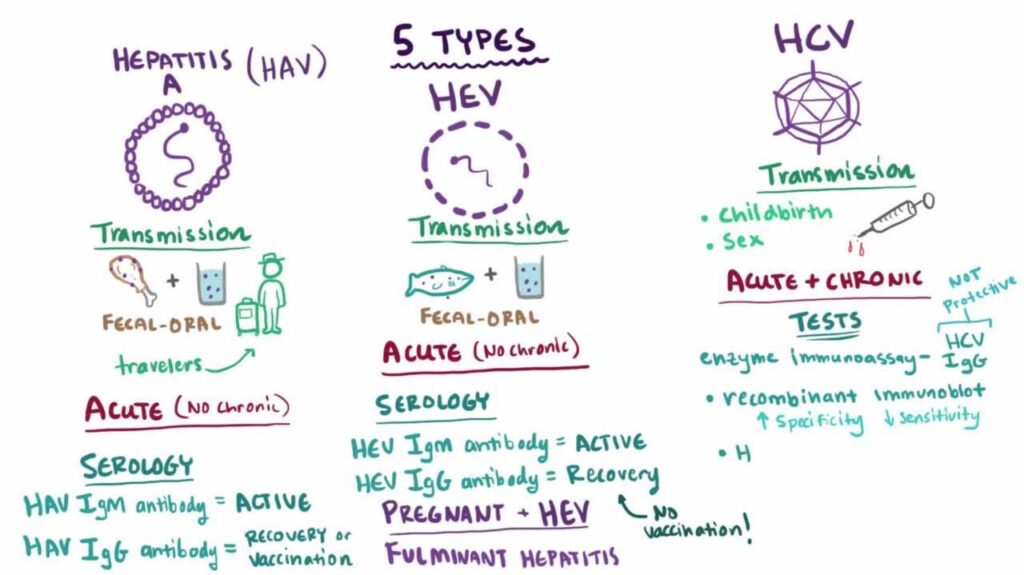 5 TYPES
HEPATITIS (HAV)
A
Transmission
+
FECAL-ORAL
travelers
ACUTE (No chronic)
SEROLOGY
HAV IgM antibody = ACTIVE
HAV IgG antibody = RECOVERY or
Vaccination
HEV
Transmission
+
FECAL-ORAL
ACUTE (No chronic)
SEROLOGY
HEV IgM antibody = ACTIVE
HEV IgG antibody = Recovery
No
vaccination!
PREGNANT + HEV
FULMINANT HEPATITIS
HCV
Transmission
• Childbirth
• Sex
ACUTE + CHRONIC
NOT
Protective
TESTS
HCV
enzyme immunoassay - IgG
• recombinant immunoblot
↑ Specificity ↓ Sensitivity
• H